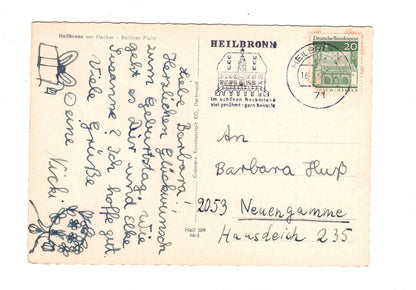 Heilbronn am Neckar - Berliner Platz
Liebe Barbara!
Herzlichen Glückwunsch
zum Geburtstag. Wie
geht es Dir und Elke
Susanne? Ich hoffe gut.
Viele Grüße
Deine Vicki
HEILBRONN
im schönen Neckarkreis
viel gerühmt - gern besucht
HEILBRONN
71
Deutsche Bundespost
20
An
Barbara Huß
2053 Neuengamme
Hausdeich 235
Heil 309